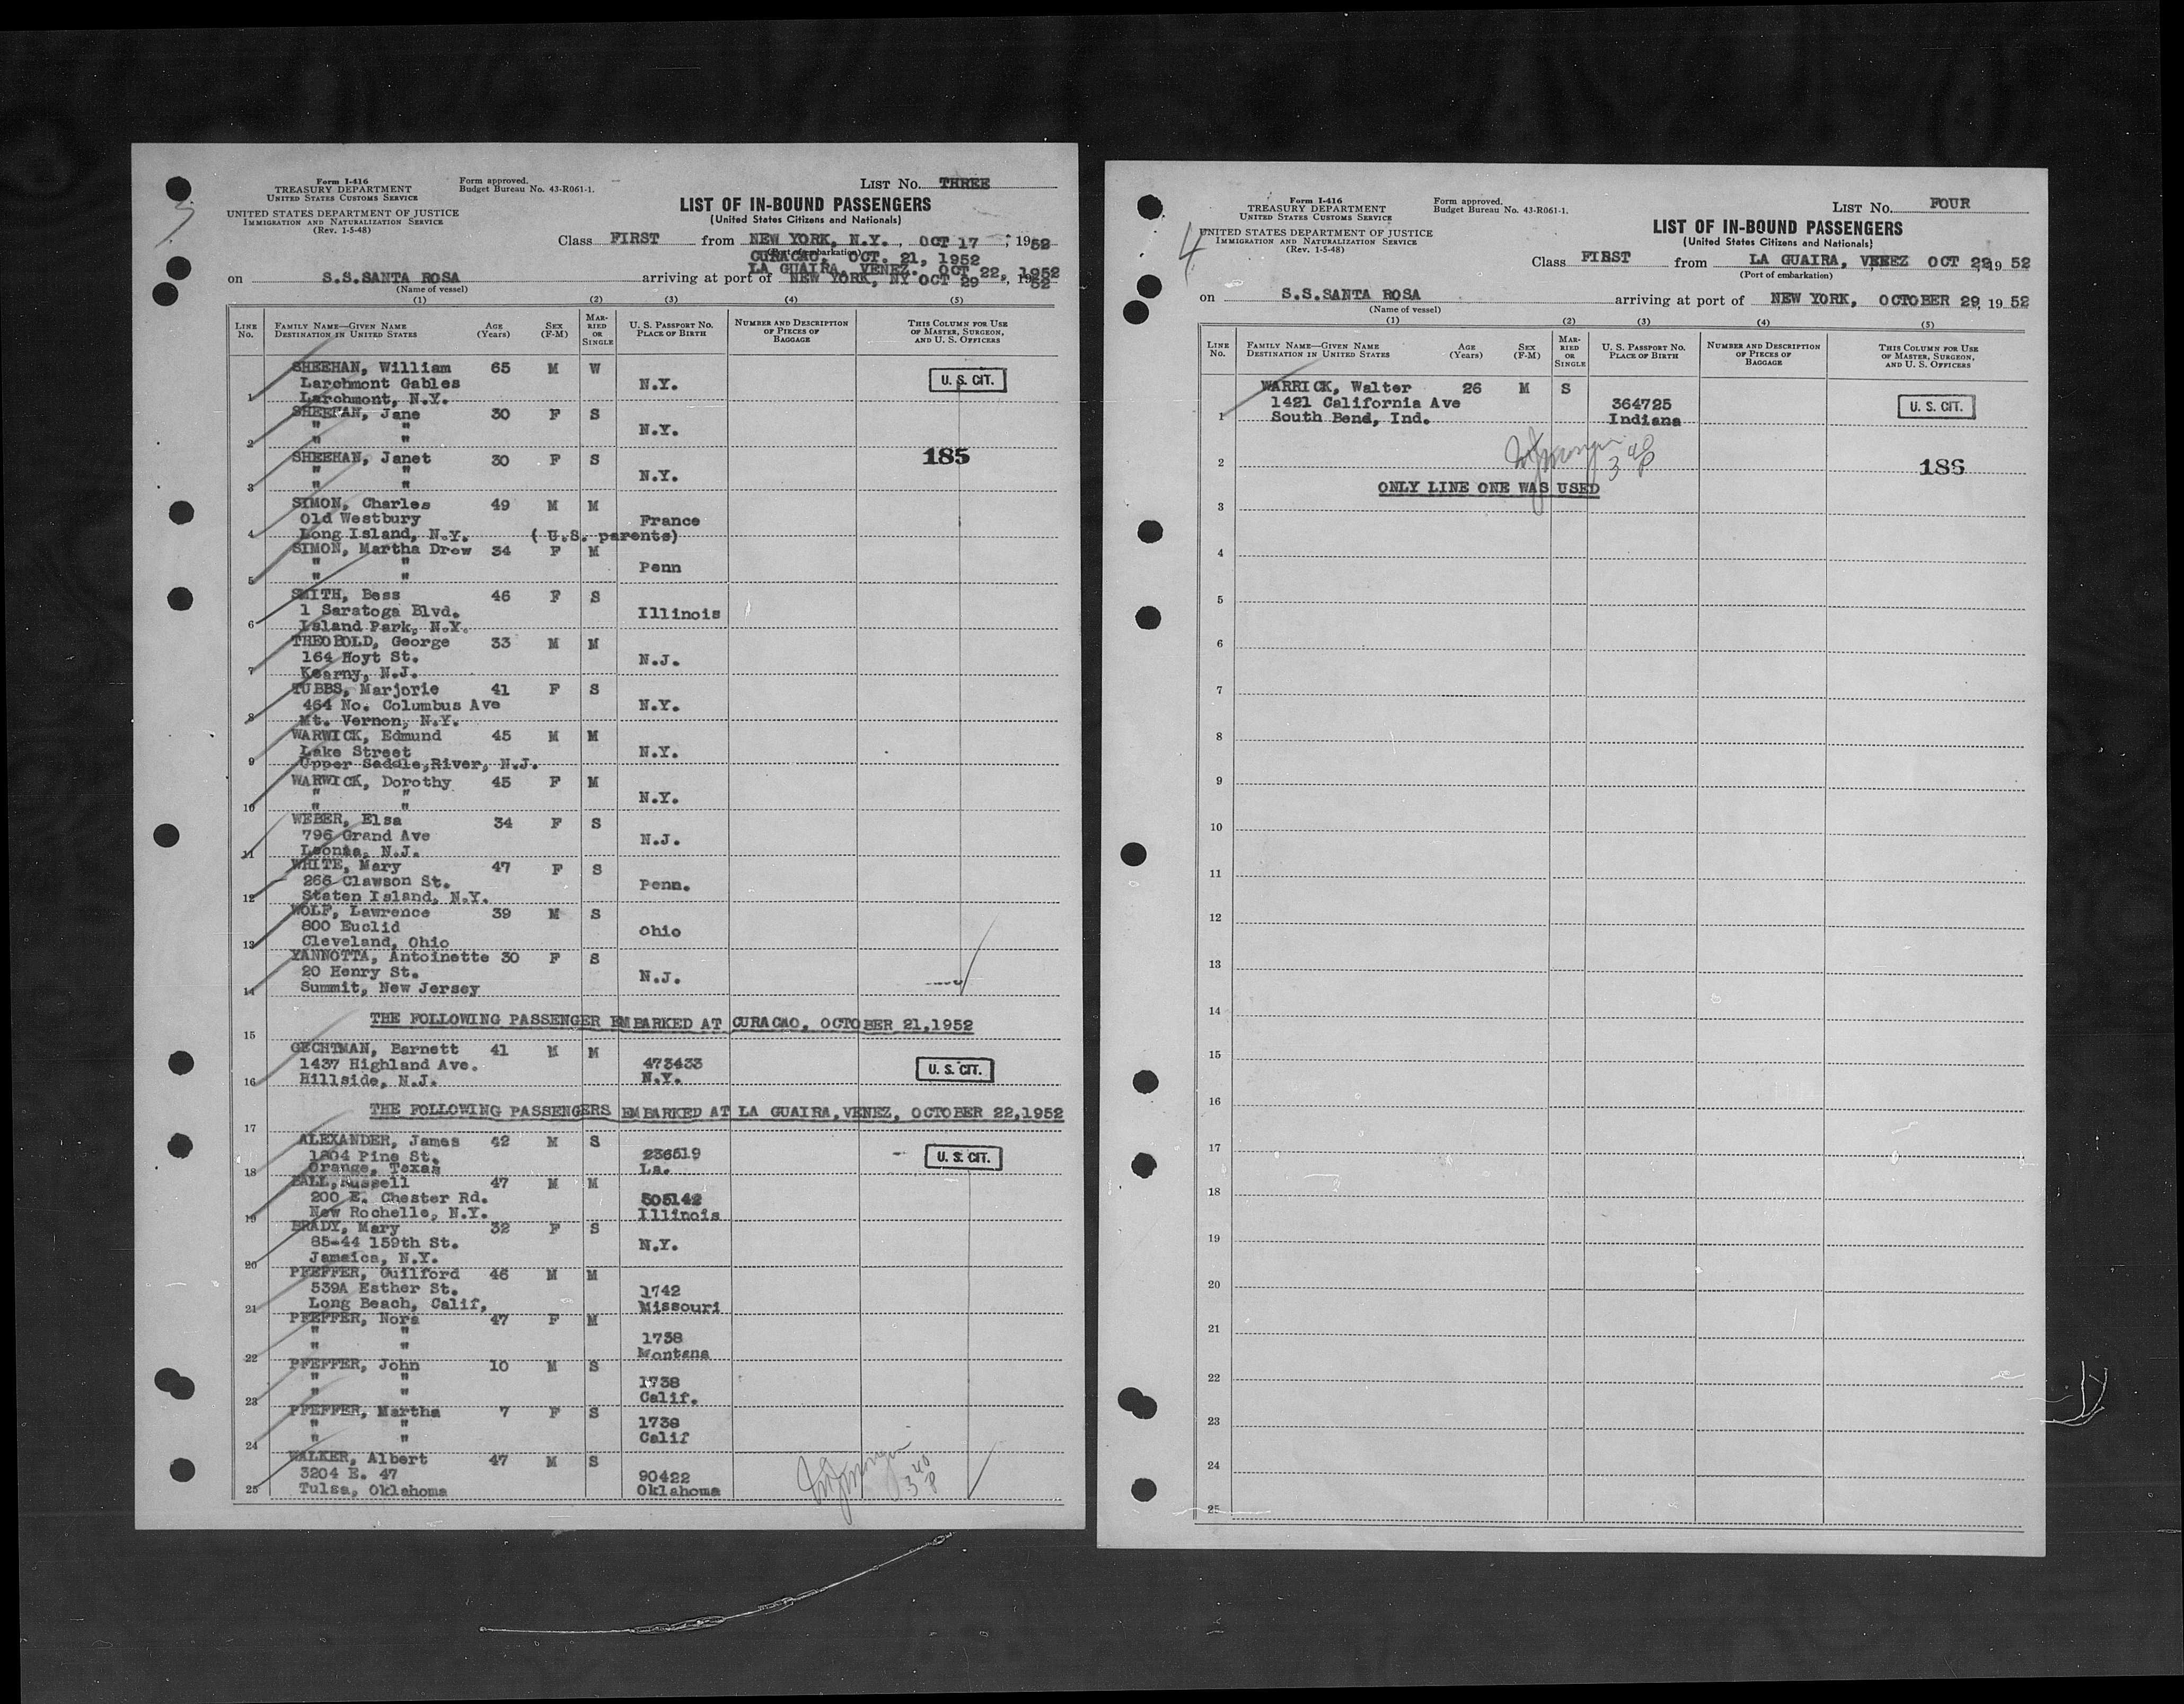 Form I-416
TREASURY DEPARTMENT
UNITED STATES CUSTOMS SERVICE
UNITED STATES DEPARTMENT OF JUSTICE
IMMIGRATION AND NATURALIZATION SERVICE
(Rev. 1-5-48)
Form approved.
Budget Bureau No. 43-R061-1.
LIST No. THREE
LIST OF IN-BOUND PASSENGERS
(United States Citizens and Nationals)
Class FIRST from NEW YORK, N.Y., OCT 17, 1952
(Port of embarkation)
CURACAO, OCT. 21, 1952
LA GUAIRA, VENEZ. OCT 22, 1952
on S.S.SANTA ROSA arriving at port of NEW YORK, NY OCT 29, 1952
(Name of vessel)
(1) (2) (3) (4) (5)
LINE No. FAMILY NAME—GIVEN NAME DESTINATION IN UNITED STATES AGE (Years) SEX (F-M) MARRIED OR SINGLE U. S. PASSPORT NO. PLACE OF BIRTH NUMBER AND DESCRIPTION OF PIECES OF BAGGAGE THIS COLUMN FOR USE OF MASTER, SURGEON, AND U. S. OFFICERS
SHEEHAN, William 65 M W
Larchmont Gables N.Y. U. S. CIT.
1 Larchmont, N.Y.
SHEEHAN, Jane 30 F S
" " N.Y.
2 " "
SHEEHAN, Janet 30 F S 185
" " N.Y.
3 " "
SIMON, Charles 49 M M
Old Westbury France
4 Long Island, N.Y. ( U.S. parents)
SIMON, Martha Drew 34 F M
" " Penn
5 " "
SMITH, Bess 46 F S
1 Saratoga Blvd. Illinois
6 Island Park, N.Y.
THEOBOLD, George 33 M M
164 Hoyt St. N.J.
7 Kearny, N.J.
TUBBS, Marjorie 41 F S
464 No. Columbus Ave N.Y.
8 Mt. Vernon, N.Y.
WARWICK, Edmund 45 M M
Lake Street N.Y.
9 Upper Saddle,River, N.J.
WARWICK, Dorothy 45 F M
" " N.Y.
10 " "
WEBER, Elsa 34 F S
796 Grand Ave N.J.
11 Leonia, N.J.
WHITE, Mary 47 F S
266 Clawson St. Penn.
12 Staten Island, N.Y.
WOLF, Lawrence 39 M S
800 Euclid Ohio
13 Cleveland, Ohio
YANNOTTA, Antoinette 30 F S
20 Henry St. N.J.
14 Summit, New Jersey
THE FOLLOWING PASSENGER EMBARKED AT CURACAO, OCTOBER 21,1952
15
GECHTMAN, Barnett 41 M M
1437 Highland Ave. 473433 U. S. CIT.
16 Hillside, N.J. N.Y.
THE FOLLOWING PASSENGERS EMBARKED AT LA GUAIRA,VENEZ, OCTOBER 22,1952
17
ALEXANDER, James 42 M S
1804 Pine St. 236519 U. S. CIT.
18 Orange, Texas La.
BALL, Russell 47 M M
200 E. Chester Rd. 505142
19 New Rochelle, N.Y. Illinois
BRADY, Mary 32 F S
85-44 159th St. N.Y.
20 Jamaica, N.Y.
PFEFFER, Guilford 46 M M
539A Esther St. 1742
21 Long Beach, Calif, Missouri
PFEFFER, Nora 47 F M
" " 1738
22 " " Montana
PFEFFER, John 10 M S
" " 1738
23 " " Calif.
PFEFFER, Martha 7 F S
" " 1738
24 " " Calif
WALKER, Albert 47 M S
3204 E. 47 90422
25 Tulsa, Oklahoma Oklahoma
3 40 P
4
Form I-416
TREASURY DEPARTMENT
UNITED STATES CUSTOMS SERVICE
UNITED STATES DEPARTMENT OF JUSTICE
IMMIGRATION AND NATURALIZATION SERVICE
(Rev. 1-5-48)
Form approved.
Budget Bureau No. 43-R061-1.
LIST No. FOUR
LIST OF IN-BOUND PASSENGERS
(United States Citizens and Nationals)
Class FIRST from LA GUAIRA, VENEZ OCT 22, 19 52
(Port of embarkation)
on S.S.SANTA ROSA arriving at port of NEW YORK, OCTOBER 29, 19 52
(Name of vessel)
(1) (2) (3) (4) (5)
LINE No. FAMILY NAME—GIVEN NAME DESTINATION IN UNITED STATES AGE (Years) SEX (F-M) MARRIED OR SINGLE U. S. PASSPORT NO. PLACE OF BIRTH NUMBER AND DESCRIPTION OF PIECES OF BAGGAGE THIS COLUMN FOR USE OF MASTER, SURGEON, AND U. S. OFFICERS
WARRICK, Walter 26 M S
1421 California Ave 364725 U. S. CIT.
1 South Bend, Ind. Indiana
3 40 P
2 186
ONLY LINE ONE WAS USED
3
4
5
6
7
8
9
10
11
12
13
14
15
16
17
18
19
20
21
22
23
24
25